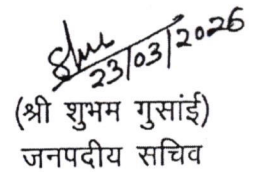 23/03/2026
(श्री शुभम गुसांई)
जनपदीय सचिव